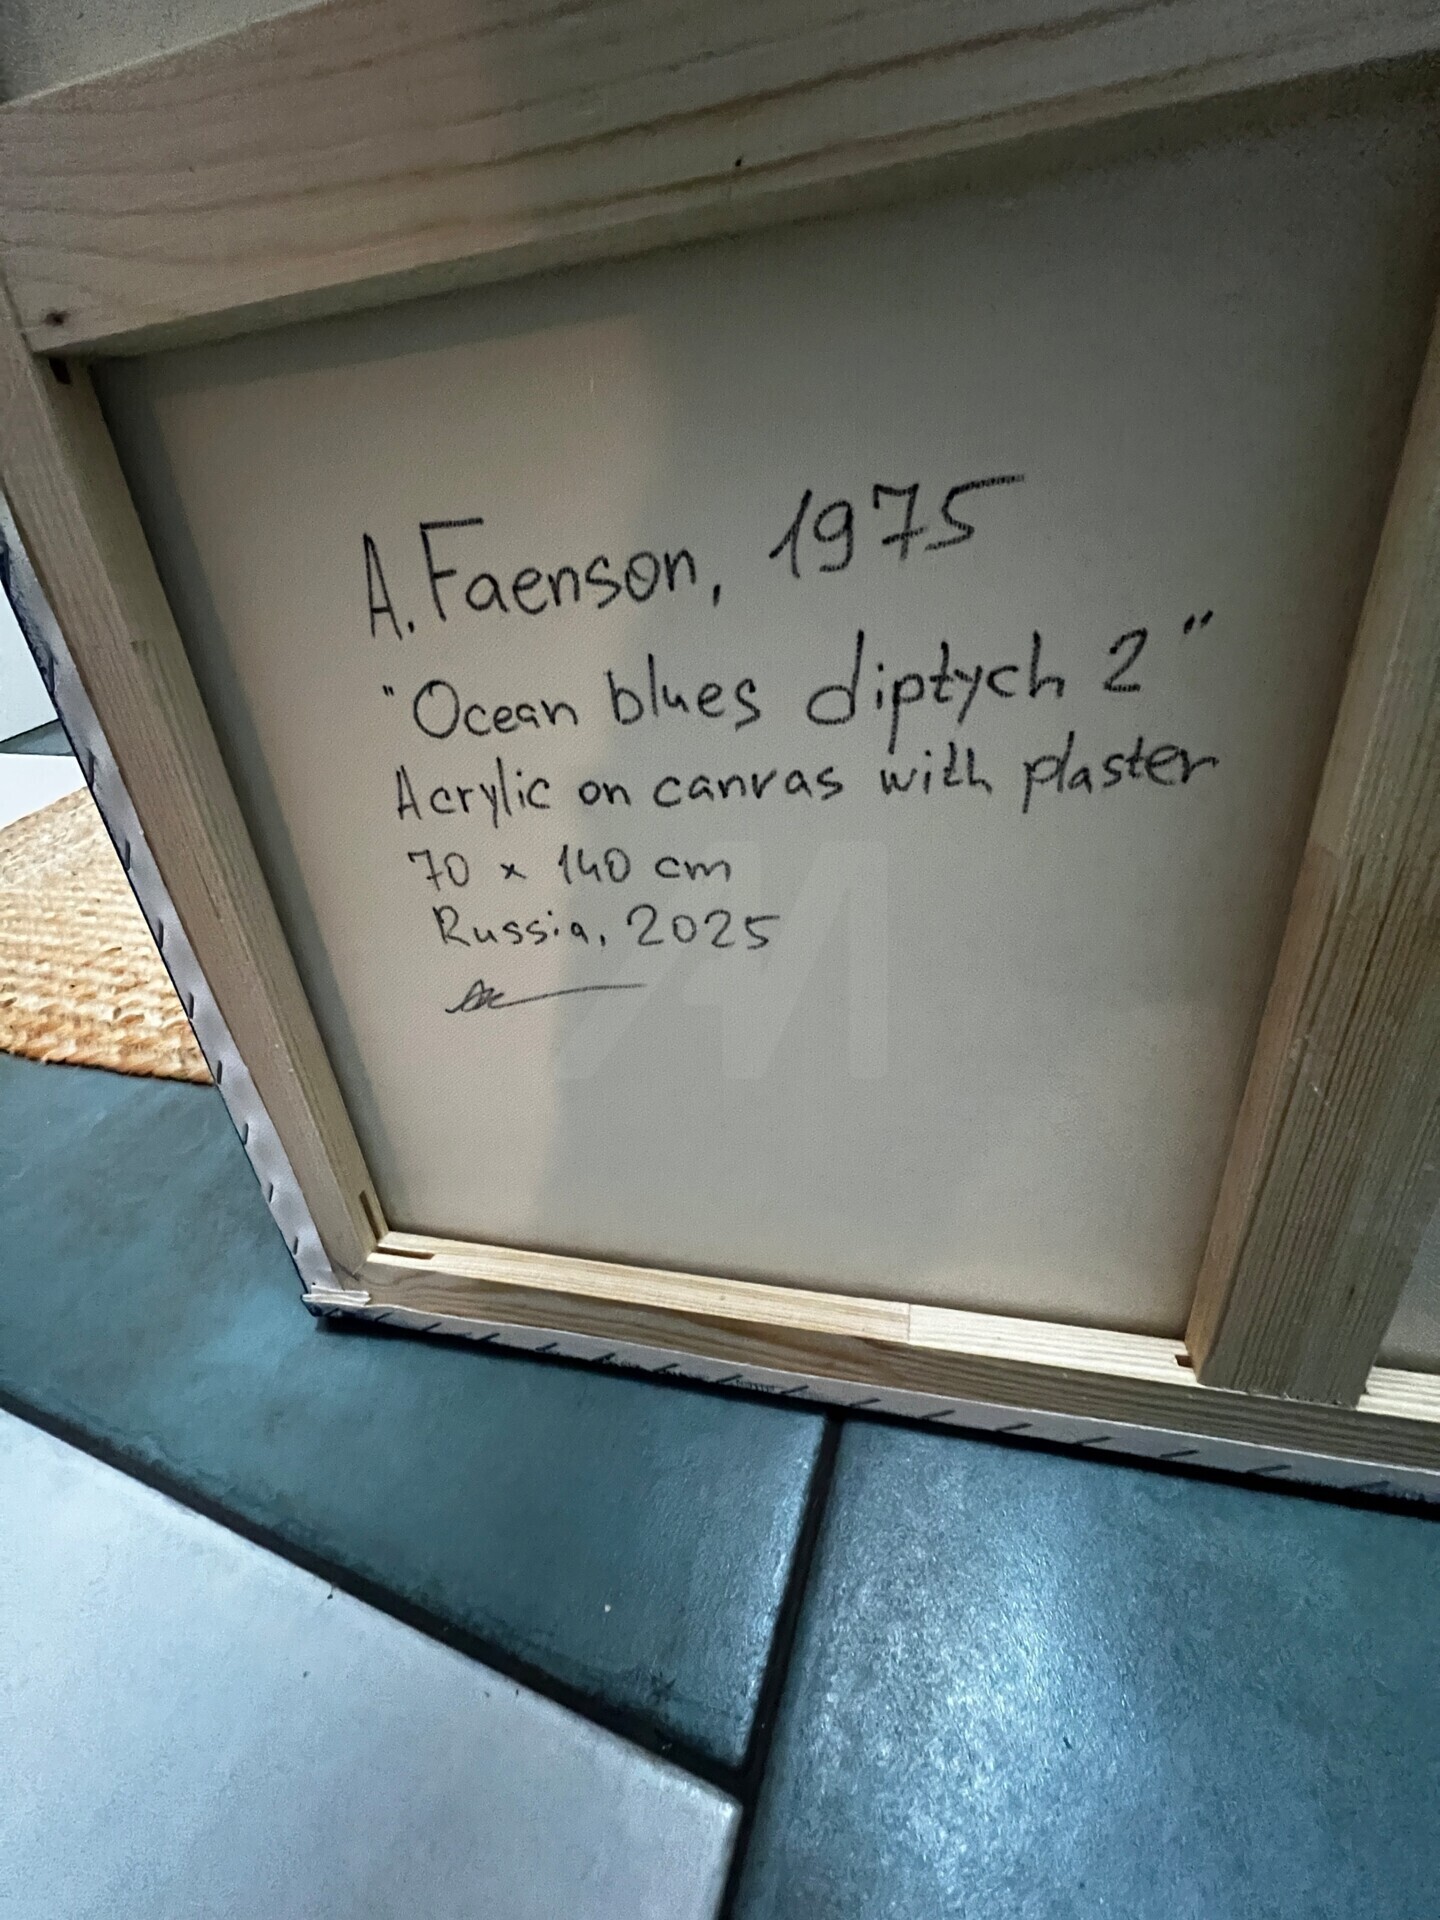 A. Faenson, 1975
"Ocean blues diptych 2"
Acrylic on canvas with plaster
70 x 140 cm
Russia, 2025